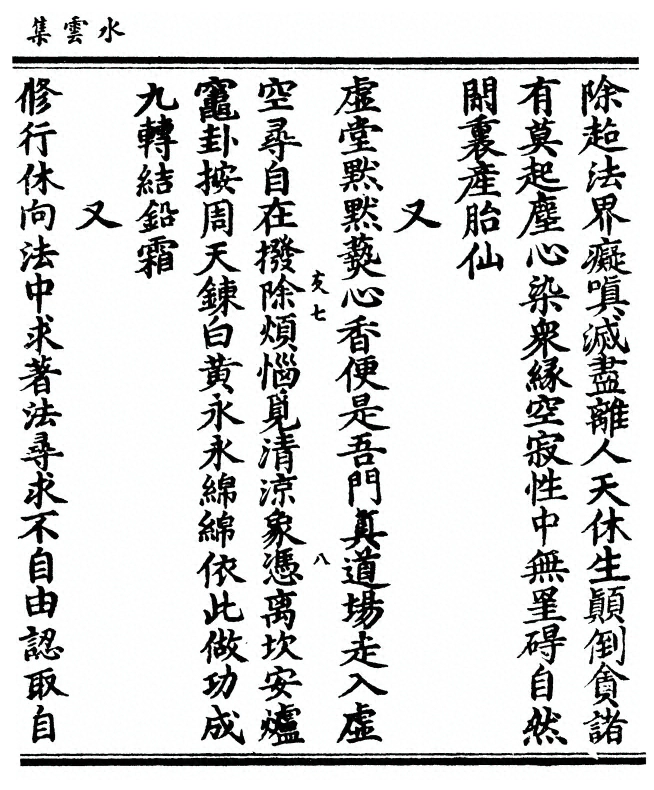 水雲集
除超法界癡嗔滅盡離人天休生顛倒貪諸
有莫起塵心染衆緣空寂性中無罣碍自然
閙裏產胎仙
又
虛堂默默爇心香便是吾門真道場走入虛
亥七
八
空尋自在撥除煩惱覓清涼象憑离坎安爐
竈卦按周天鍊白黃永永綿綿依此做功成
九轉結鉛霜
又
修行休向法中求著法尋求不自由認取自